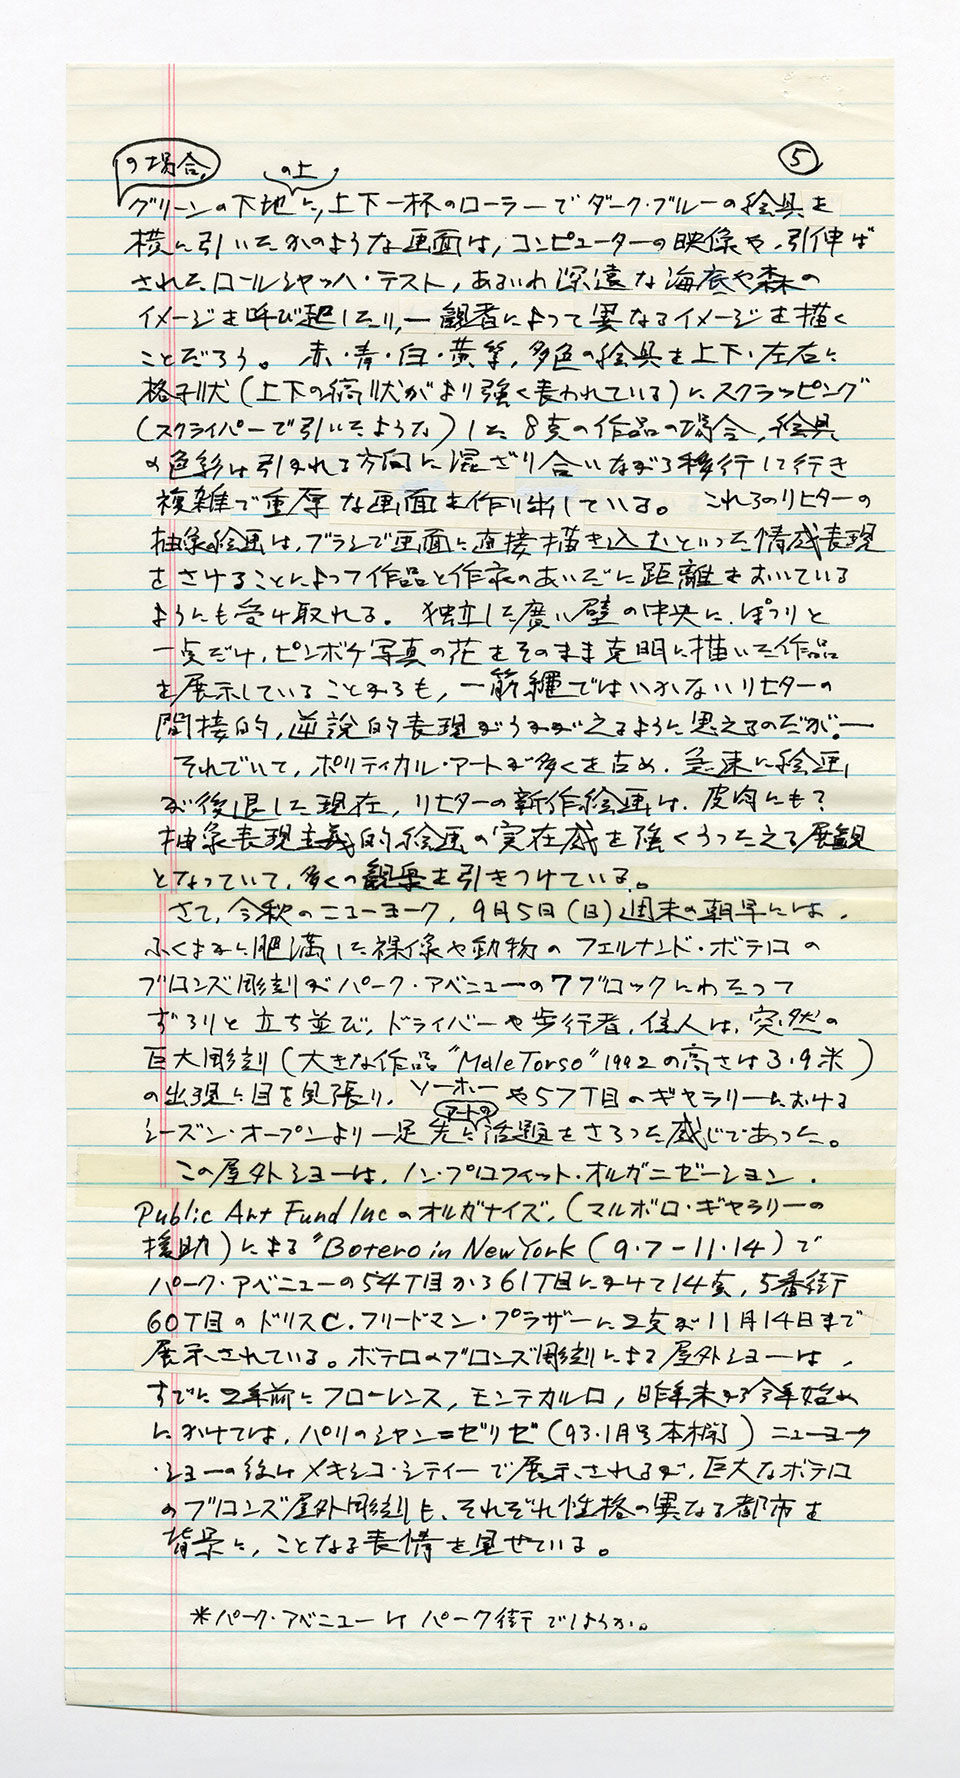 の場合、
の上
⑤
グリーンの下地に、上下一杯のローラーでダーク・ブルーの絵具を
横に引いたかのような画面は、コンピューターの映像や、引伸ば
されたロールシャッハ・テスト、あるいわ深遠な海底や森の
イメージを呼び起したり、一観者によって異なるイメージを描く
ことだろう。 赤・青・白・黄等、多色の絵具を上下・左右に
格子状(上下の縞状がより強く表われている)にスクラッピング
(スクライパーで引いたような)した8点の作品の場合、絵具
の色彩は引かれる方向に混ざり合いながら移行して行き
複雑で重厚な画面を作り出している。 これらのリヒターの
抽象絵画は、ブラシで画面に直接描き込むといった情感表現
をさけることによって作品と作家のあいだに距離をおいている
ようにも受け取れる。 独立した広い壁の中央に、ぽつりと
一点だけ、ピンボケ写真の花をそのまま克明に描いた作品
を展示していることからも、一筋縄ではいかないリヒターの
間接的、逆説的表現がうかがえるように思えるのだが。一
それでいて、ポリティカル・アートが多くを占め、急速に絵画
が後退した現在、リヒターの新作絵画は、皮肉にも?
抽象表現主義的絵画の実在感を強くうったえる展観
となっていて、多くの観衆を引きつけている。
さて、今秋のニューヨーク、9月5日(日)週末の朝早には、
ふくよかに肥満した裸像や動物のフェルナンド・ボテロの
ブロンズ彫刻がパーク・アベニューの7ブロックにわたって
ずらりと立ち並び、ドライバーや歩行者、住人は、突然の
巨大彫刻(大きな作品"Male Torso"1992の高さは3.9米)
の出現に目を見張り、ソーホーや57丁目のギャラリーにおける
アートの
シーズン・オープンより一足先に話題をさらった感じであった。
この屋外ショーは、ノン・プロフィット・オルガニゼーション、
Public Art Fund Incのオルガナイズ、(マルボロ・ギャラリーの
援助)による"Botero in New York (9.7-11.14)で
パーク・アベニューの54丁目から61丁目にかけて14点、5番街
60丁目のドリスC.フリードマン・プラザーに2点が11月14日まで
展示されている。ボテロのブロンズ彫刻による屋外ショーは、
すでに2年前にフローレンス、モンテカルロ、昨年末から今年始め
にかけては、パリのシャンゼリゼ(93.1月号本欄)ニューヨーク
・ショーの後はメキシコ・シティーで展示されるが、巨大なボテロ
のブロンズ屋外彫刻も、それぞれ性格の異なる都市を
背景に、ことなる表情を見せている。
*パーク・アベニューはパーク街でしょうか。